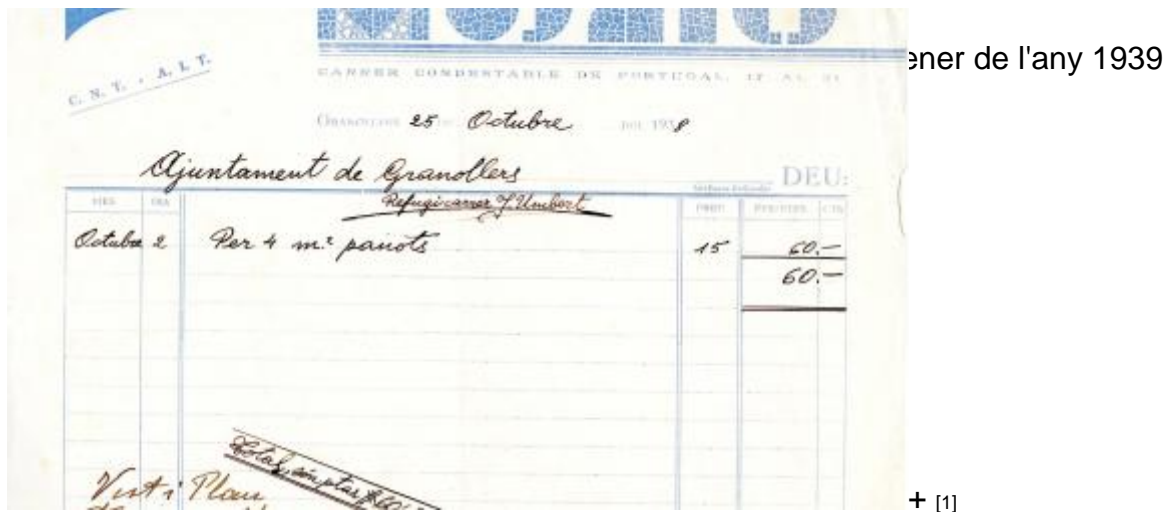 ener de l'any 1939
C. N. T. - A. I. T.
CARRER CONDESTABLE DE PORTUGAL, 17 AL 21
25 Octubre DEL 1938
Ajuntament de Granollers
DEU:
Refugi carrer J. Umbert
MES DIA PREU PESSETES CTS
Octubre 2 Per 4 m.² panots 15 60.—
60.—
Total,
Vist i Plau
+ [1]